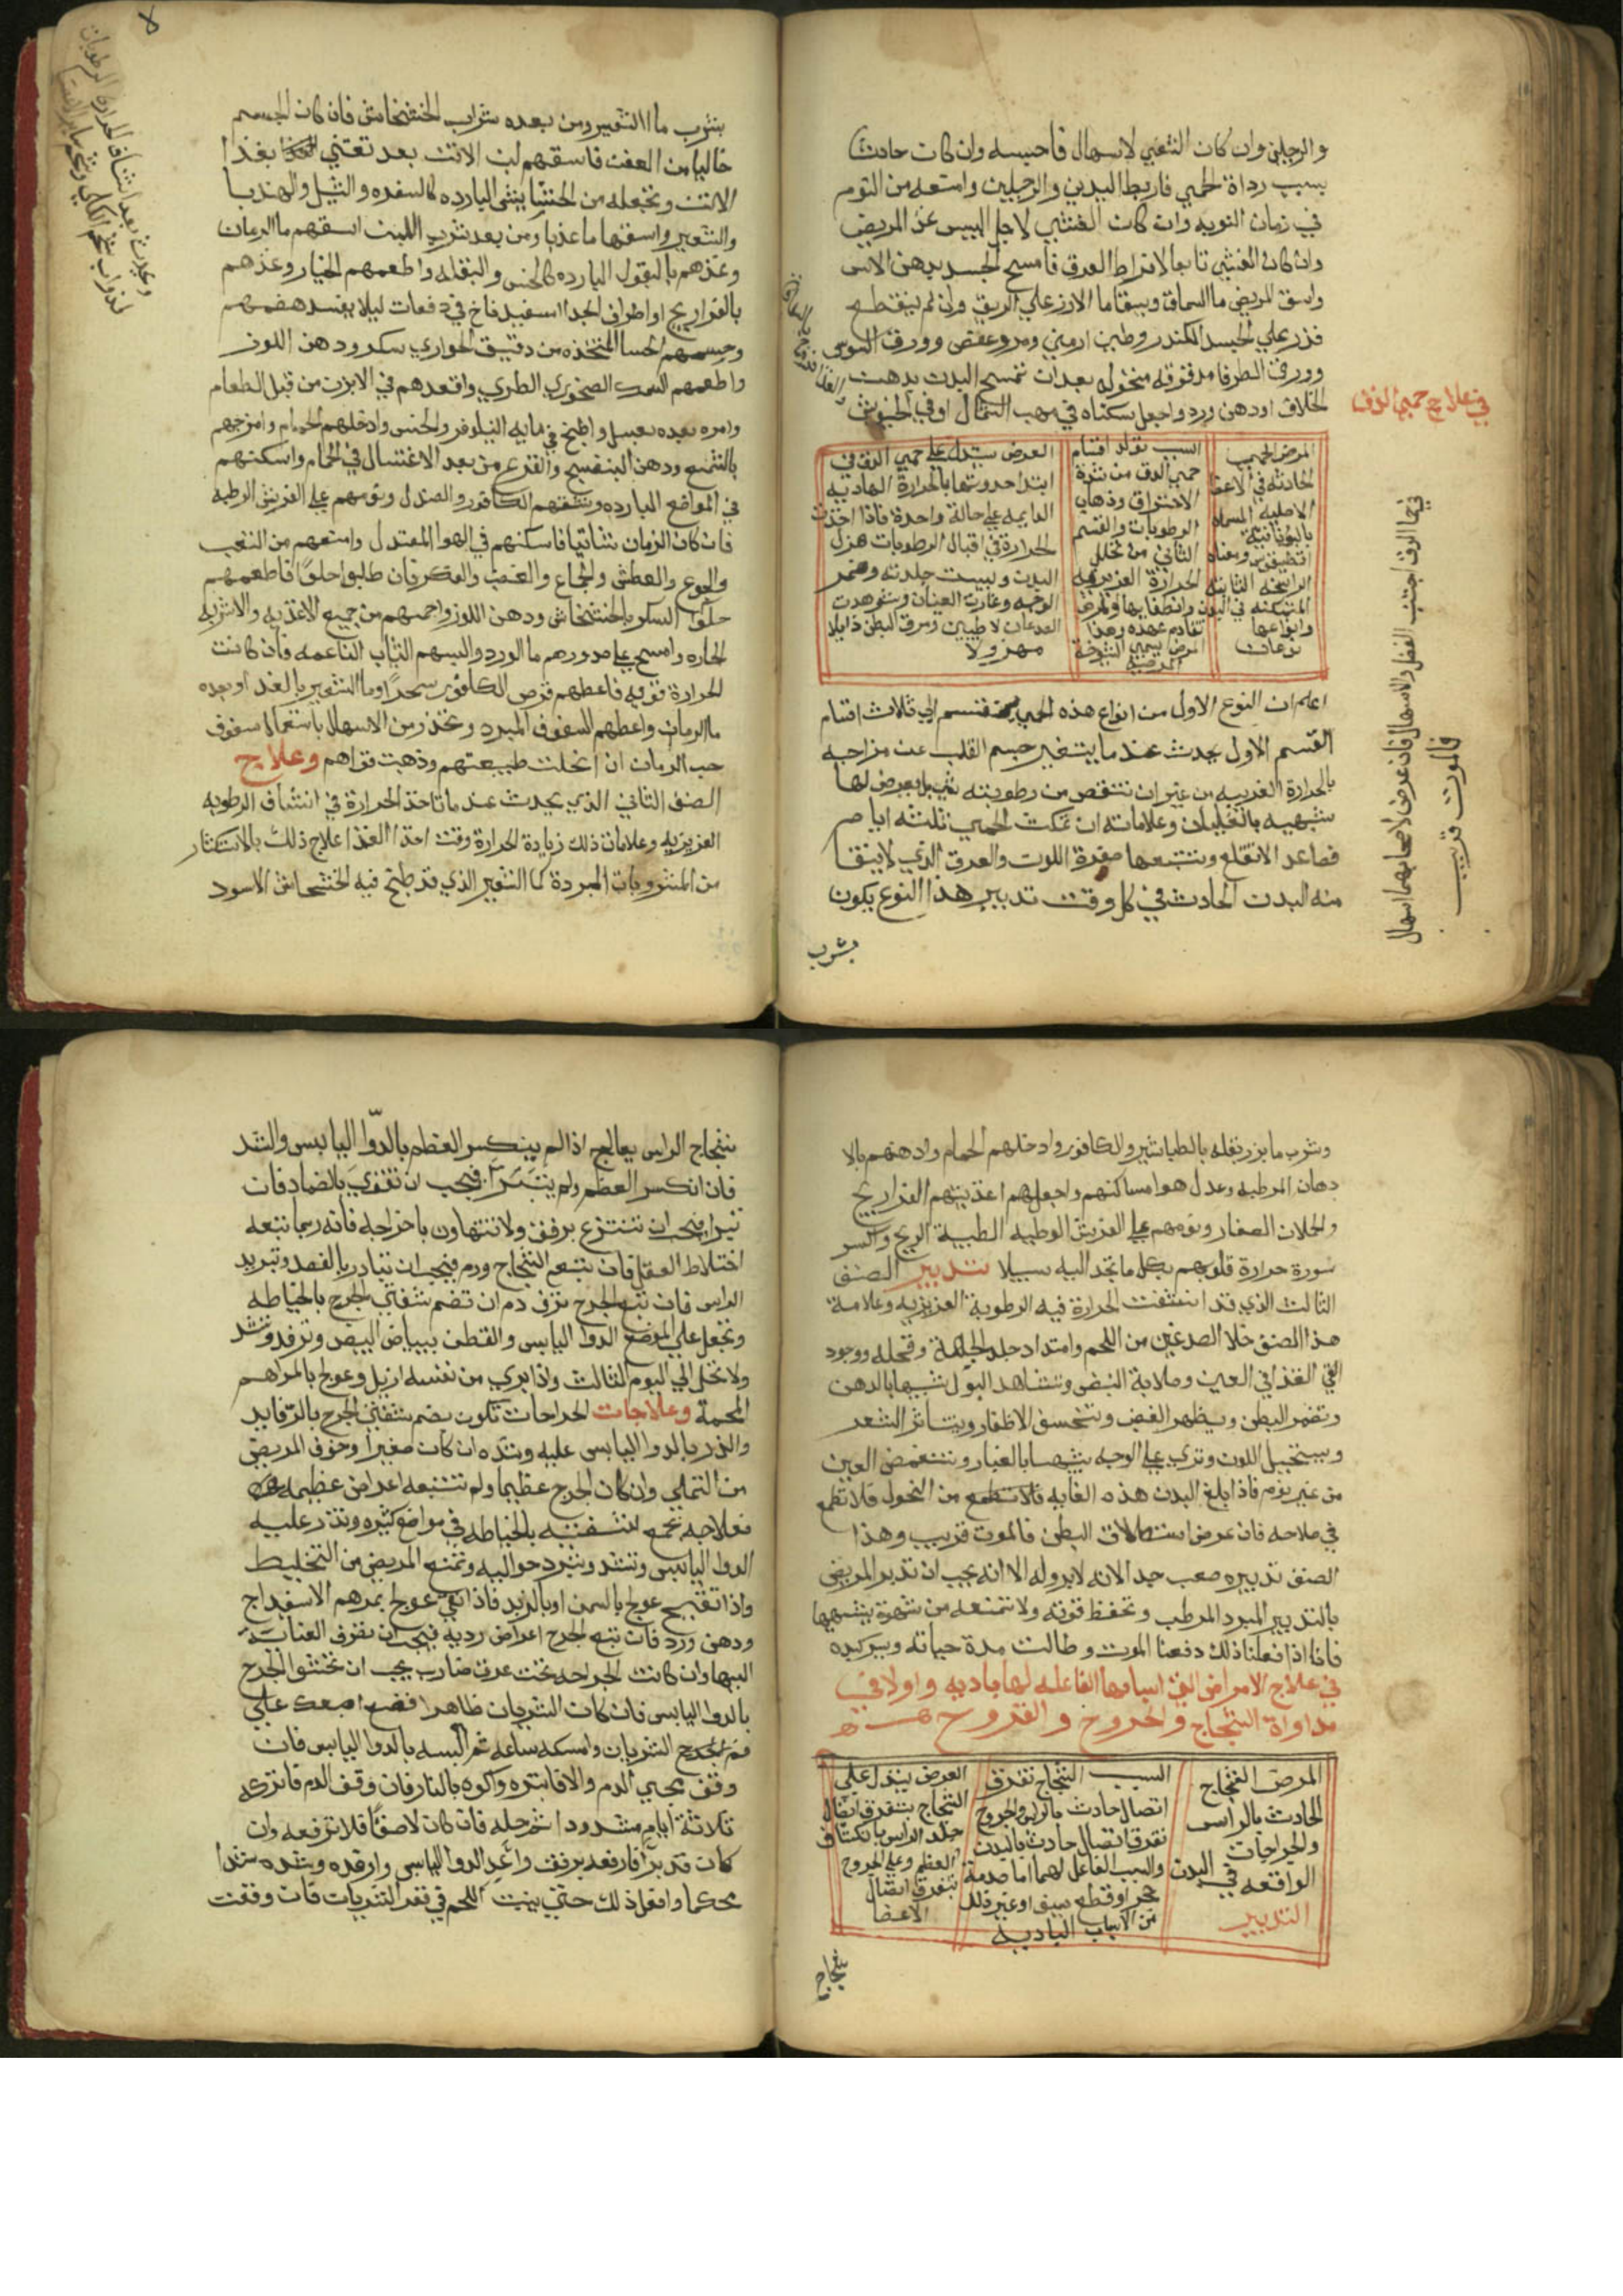 والرجلين وان كان الغشي لاسهال فاحبسه وان كان حادثا
بسبب رداة الحمي فاربط اليدين والرجلين وامنعه من النوم
في زمان النوبه وان كان الغشي لاجل اليبس عند المريض
وان كان الغشي تابعا لافراط العرق فامسح الجسد بدهن الاس
واسق المريض ما السماق وسقا ما الارز علي الريق وان لم ينقطع
فذر علي الجسد الكندر وطين ارمني ومر وعفص وورق السوس
وورق الطرفا مدقوقه منخوله بعد ان تمسح البدن بدهن
الخلاف او دهن ورد واجعل سكناه في مهب الشمال او في الخيوش
في علاج حمي الدق
المرض الحمي
الحادثه في الاعضا
الاصليه المسماه
باليونانيه
اقطيقوس ومعناه
الراسخه الثابته
المتمكنه في البدن
وانواعها
نوعان
السبب تولد اقسام
حمي الدق من شدة
الاحتراق وذهاب
الرطوبات والقسم
الثاني من تحلل
الحرارة الغريزيه
وانطفايها والمرض
تقادم عهده وهذا
المرض يسمي الشيخوخة
المرضيه
العرض يستدل علي حمي الدق في
ابتدا حدوثها بالحرارة الهاديه
الدايمه علي حالة واحدة فاذا اخذت
الحرارة في اقبال الرطوبات هزل
البدن ويبست جلدته وضمر
الوجه وغارت العينان وشوهدت
الصدغان لاطيين ومرق البطن ذابلا
مهزولا
اعلم ان النوع الاول من انواع هذه الحمي ينقسم الي ثلاث اقسام
القسم الاول يحدث عندما يتغير جسم القلب عن مزاجه
بالحرارة الغريبه من غير ان تنتقص من رطوبته شيا بل يعرض لها
شبهيه بالغليان وعلاماته ان تمكث الحمي ثلثه ايام
فصاعد الاتقلع وتتبعها صفرة اللون والعرق الذي لا ينقا
منه البدن الحادث في كل وقت تدبير هذا النوع يكون
بشرب
في حما الدق اجتنب الفصد والاسهال فان عرض لاصحابهما اسهال
فالموت قريب
بشرب ما الشعير ومن بعده شراب الخشخاش فان كان الجسم
خاليا من العفن فاسقهم لبن الاتن بعد تعتني بغذا
الاتن وتجعله من الحشايش البارده كالسفده والثيل والهندبا
والشعير واسقها ما عذبا ومن بعد شرب اللبن اسقهم ما الرمان
وغذهم بالبقول البارده كالخس والبقله واطعمهم الخيار وغذهم
بالفراريج او اطراف الجدا اسفيدفاخ في دفعات ليلا يفسد هضمهم
وحسهم الحسا المتخذه من دقيق الحواري بسكر ودهن اللوز
واطعمهم السمك الصخوري الطري واقعدهم في الابزن من قبل الطعام
وامره بعده بعسل واطبخ في مايه النيلوفر والخس وادخلهم الحمام وامرخهم
بالشمع ودهن البنفسج والقرع من بعد الاغتسال في الحمام واسكنهم
في المواضع البارده وشمهم الكافور والصندل ونومهم علي الفرش الرطبه
فان كان الزمان شاتيا فاسكنهم في الهوا المعتدل وامنعهم من التعب
والجوع والعطش والجماع والغضب والفكر فان طلبوا حلوا فاطعمهم
حلوا السكر بالخشخاش ودهن اللوز واحمهم من جميع الاغذيه والاشربه
الحاره وامسح علي صدورهم ما الورد والبسهم الثياب الناعمه فان كانت
الحرارة قويه فاعطهم قرص الكافور سحرا وما الشعير بالغد او بعده
ما الرمان واعطهم السفوف المبرد وتحذر من الاسهال باستعمال سفوف
حب الرمان ان انحلت طبيعتهم وذهبت قواهم وعلاج
الصنف الثاني الذي يحدث عندما تاخذ الحرارة في انتشاف الرطوبه
الغريزيه وعلامات ذلك زيادة الحرارة وقت اخذ الغذا علاج ذلك بالاستكثار
من المشروبات المبردة كما الشعير الذي قد طبخ فيه الخشخاش الاسود
وشرب ما بزر بقله بالطباشير والكافور وادخلهم الحمام وادهنهم بالا
دهان المرطبه وعدل هوا مساكنهم واجعل لهم اغذيتهم الفراريج
والحملان الصغار ونومهم علي الفرش الوطيه الطيبة الريح واكسر
سورة حرارة قلوبهم بكل ما تجد اليه سبيلا تدبير الصنف
الثالث الذي قد انتشفت الحرارة فيه الرطوبة الغريزيه وعلامة
هذا الصنف خلا الصدغين من اللحم وامتداد جلد الجبهة وقحله ووجود
القي القذا في العين وصلابة النبض وتشاهد البول شبيها بالدهن
وتضمر البطن ويظهر الغضن وتنخسف الاظفار ويتناثر الشعر
ويستحيل اللون وتري علي الوجه شبيها بالغبار وتتغمض العين
من غير نوم فاذا بلغ البدن هذه الغايه من النحول فلا تطمع
في صلاحه فان عرض استطلاق البطن فالموت قريب وهذا
الصنف تدبيره صعب جدا لانه لا برو له الا انه يجب ان تدبر المريض
بالتدبير المبرد المرطب وتحفظ قوته ولا تمنعه من شهوة يشتهيها
فانا اذا فعلنا ذلك دفعنا الموت وطالت مدة حياته
في علاج الامراض التي اسبابها الفاعله لها باديه واولا في
مداواة الشجاج والجروح والقروح
المرض الشجاج
الحادث بالراس
والجراحات
الواقعه في البدن
التدبير
السبب الشجاج تفرق
اتصال حادث بالراس والجروح
تفرق اتصال حادث بالبدن
والسبب الفاعل لهما اما صدمة
حجر او قطع سيف او غير ذلك
من الاسباب الباديه
العرض يستدل علي
الشجاج بتفرق اتصال
جلد الراس بانكشاف
العظم وعلي الجروح
بتفرق اتصال
الاعضا
شجاج
شجاج الراس يعالج اذا لم ينكسر العظم بالدوا اليابس والشد
فان انكسر العظم ولم يتبرا فيجب ان تتقوي بالضماد فان
تبرا فيجب ان تنتزع برفق ولا تتهاون باخراجه فانه ربما تبعه
اختلاط العقل فان تبع الشجاج ورم فيجب ان تبادر بالفصد وتبريد
الراس فان تبع الجرح نزف دم ان تضم شفتي الجرح بالخياطه
وتجعل علي الموضع الدوا اليابس والقطن ببياض البيض وترفد وتشد
ولا تحل الي اليوم الثالث واذا بري من نفسه ازيل وعولج بالمراهم
الملحمة وعلاجات الجراحات تكون بضم شفتي الجرح بالرفايد
والذر بالدوا اليابس عليه وشده ان كان صغيرا وخوف المريض
من التملي وان كان الجرح عظيما ولم تتبعه اعراض عظيمه
فعلاجه تجمع شفتيه بالخياطه في مواضع كثيره وتذر عليه
الدوا اليابس وتشد وتبرد حواليه وتمنع المريض من التخليط
واذا تقيح عولج بالسمن او بالزبد فاذا نقي عولج بمرهم الاسفيداج
ودهن ورد فان تبع الجرح اعراض رديه فيجب ان تصرف العناية
اليها وان كانت الجراحه تحت عرق ضارب يجب ان تحشوا الجرح
بالدوا اليابس فان كان الشريان ظاهرا فضع اصبعك علي
فم الشريان وامسكه ساعه ثم البسه بالدوا اليابس فان
وقف مجي الدم والا فابتره واكوه بالنار فان وقف الدم فاتركه
ثلاثة ايام مشدودا ثم حله فان كان لاصقا فلا ترفعه وان
كان قد تبرا فارفعه برفق واعد الدوا اليابس وارفده وشده شدا
محكما وافعل ذلك حتي ينبت اللحم في نقر الشريان فان وقفت